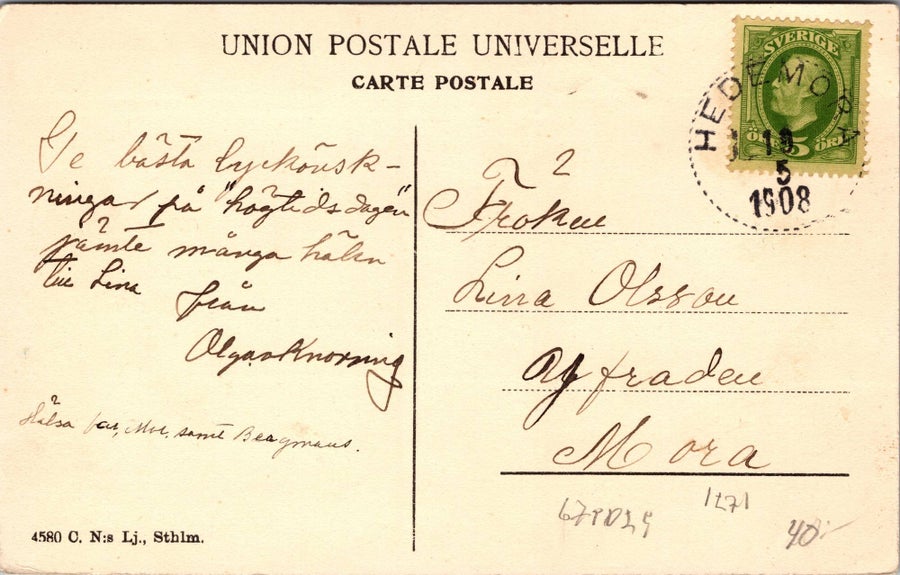 UNION POSTALE UNIVERSELLE
CARTE POSTALE
SVERIGE
5 ÖRE
HEDEMORA
19
5
1908
De bästa lyckönsk-
ningar på "högtidsdagen"
jämte många hälsn
till Lina
från
Olga v Knorring
Hälsa far, Mor, samt Beagmans.
Fröken
Lina Olsson
Mora
1271
40:-
4580 C. N:s Lj., Sthlm.